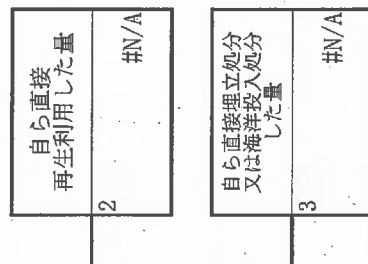 自ら直接
再生利用した量
2
#N/A
自ら直接埋立処分
又は海洋投入処分
した量
3
#N/A